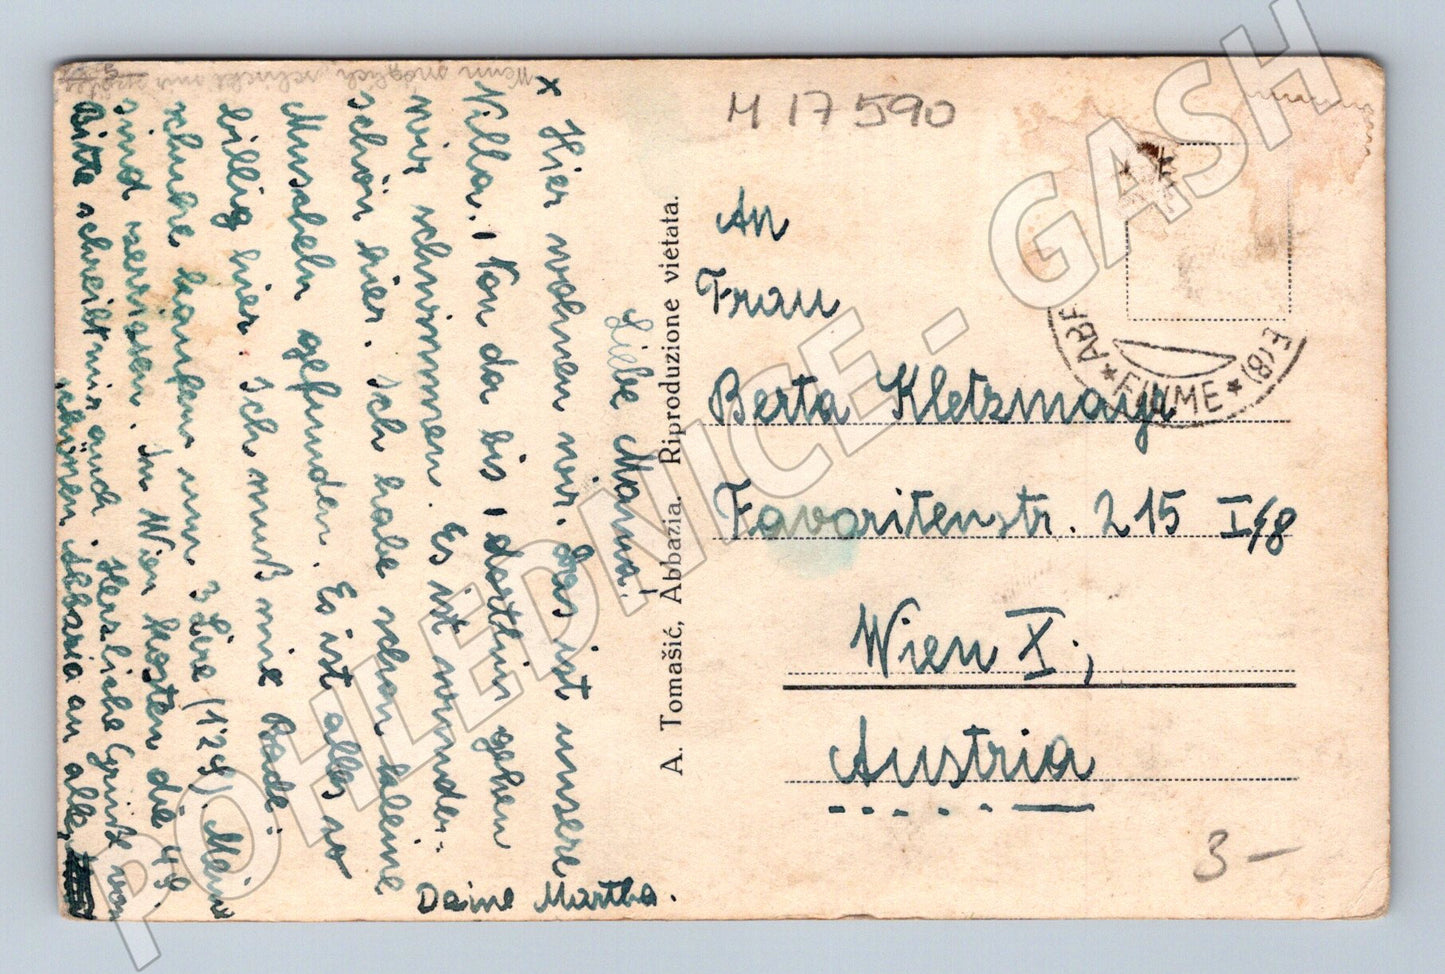 Wenn möglich, schickt mir
Liebe Mama!
x Hier wohnen wir. Das ist unsere
Villa. Von da bis dorthin gehen
wir schwimmen. Es ist wunder-
schön hier. Ich habe schon kleine
Muscheln gefunden. Es ist alles so
billig hier. Ich muß mir Bade-
schuhe kaufen um 3 Lire (1'2 S). Meine
sind zerrissen. In Wien kosten die 4 S.
Bitte schreibt mir auch. Herzliche Grüße vom
schönen Abbazia an alle,
Deine Martha.
A. Tomašić, Abbazia. Riproduzione vietata.
M 17 590
An
Frau
Berta Kletzmayr
Favoritenstr. 215 I/8
Wien X.,
Austria
* FIUME *
3 —
POHLEDNICE - GASH